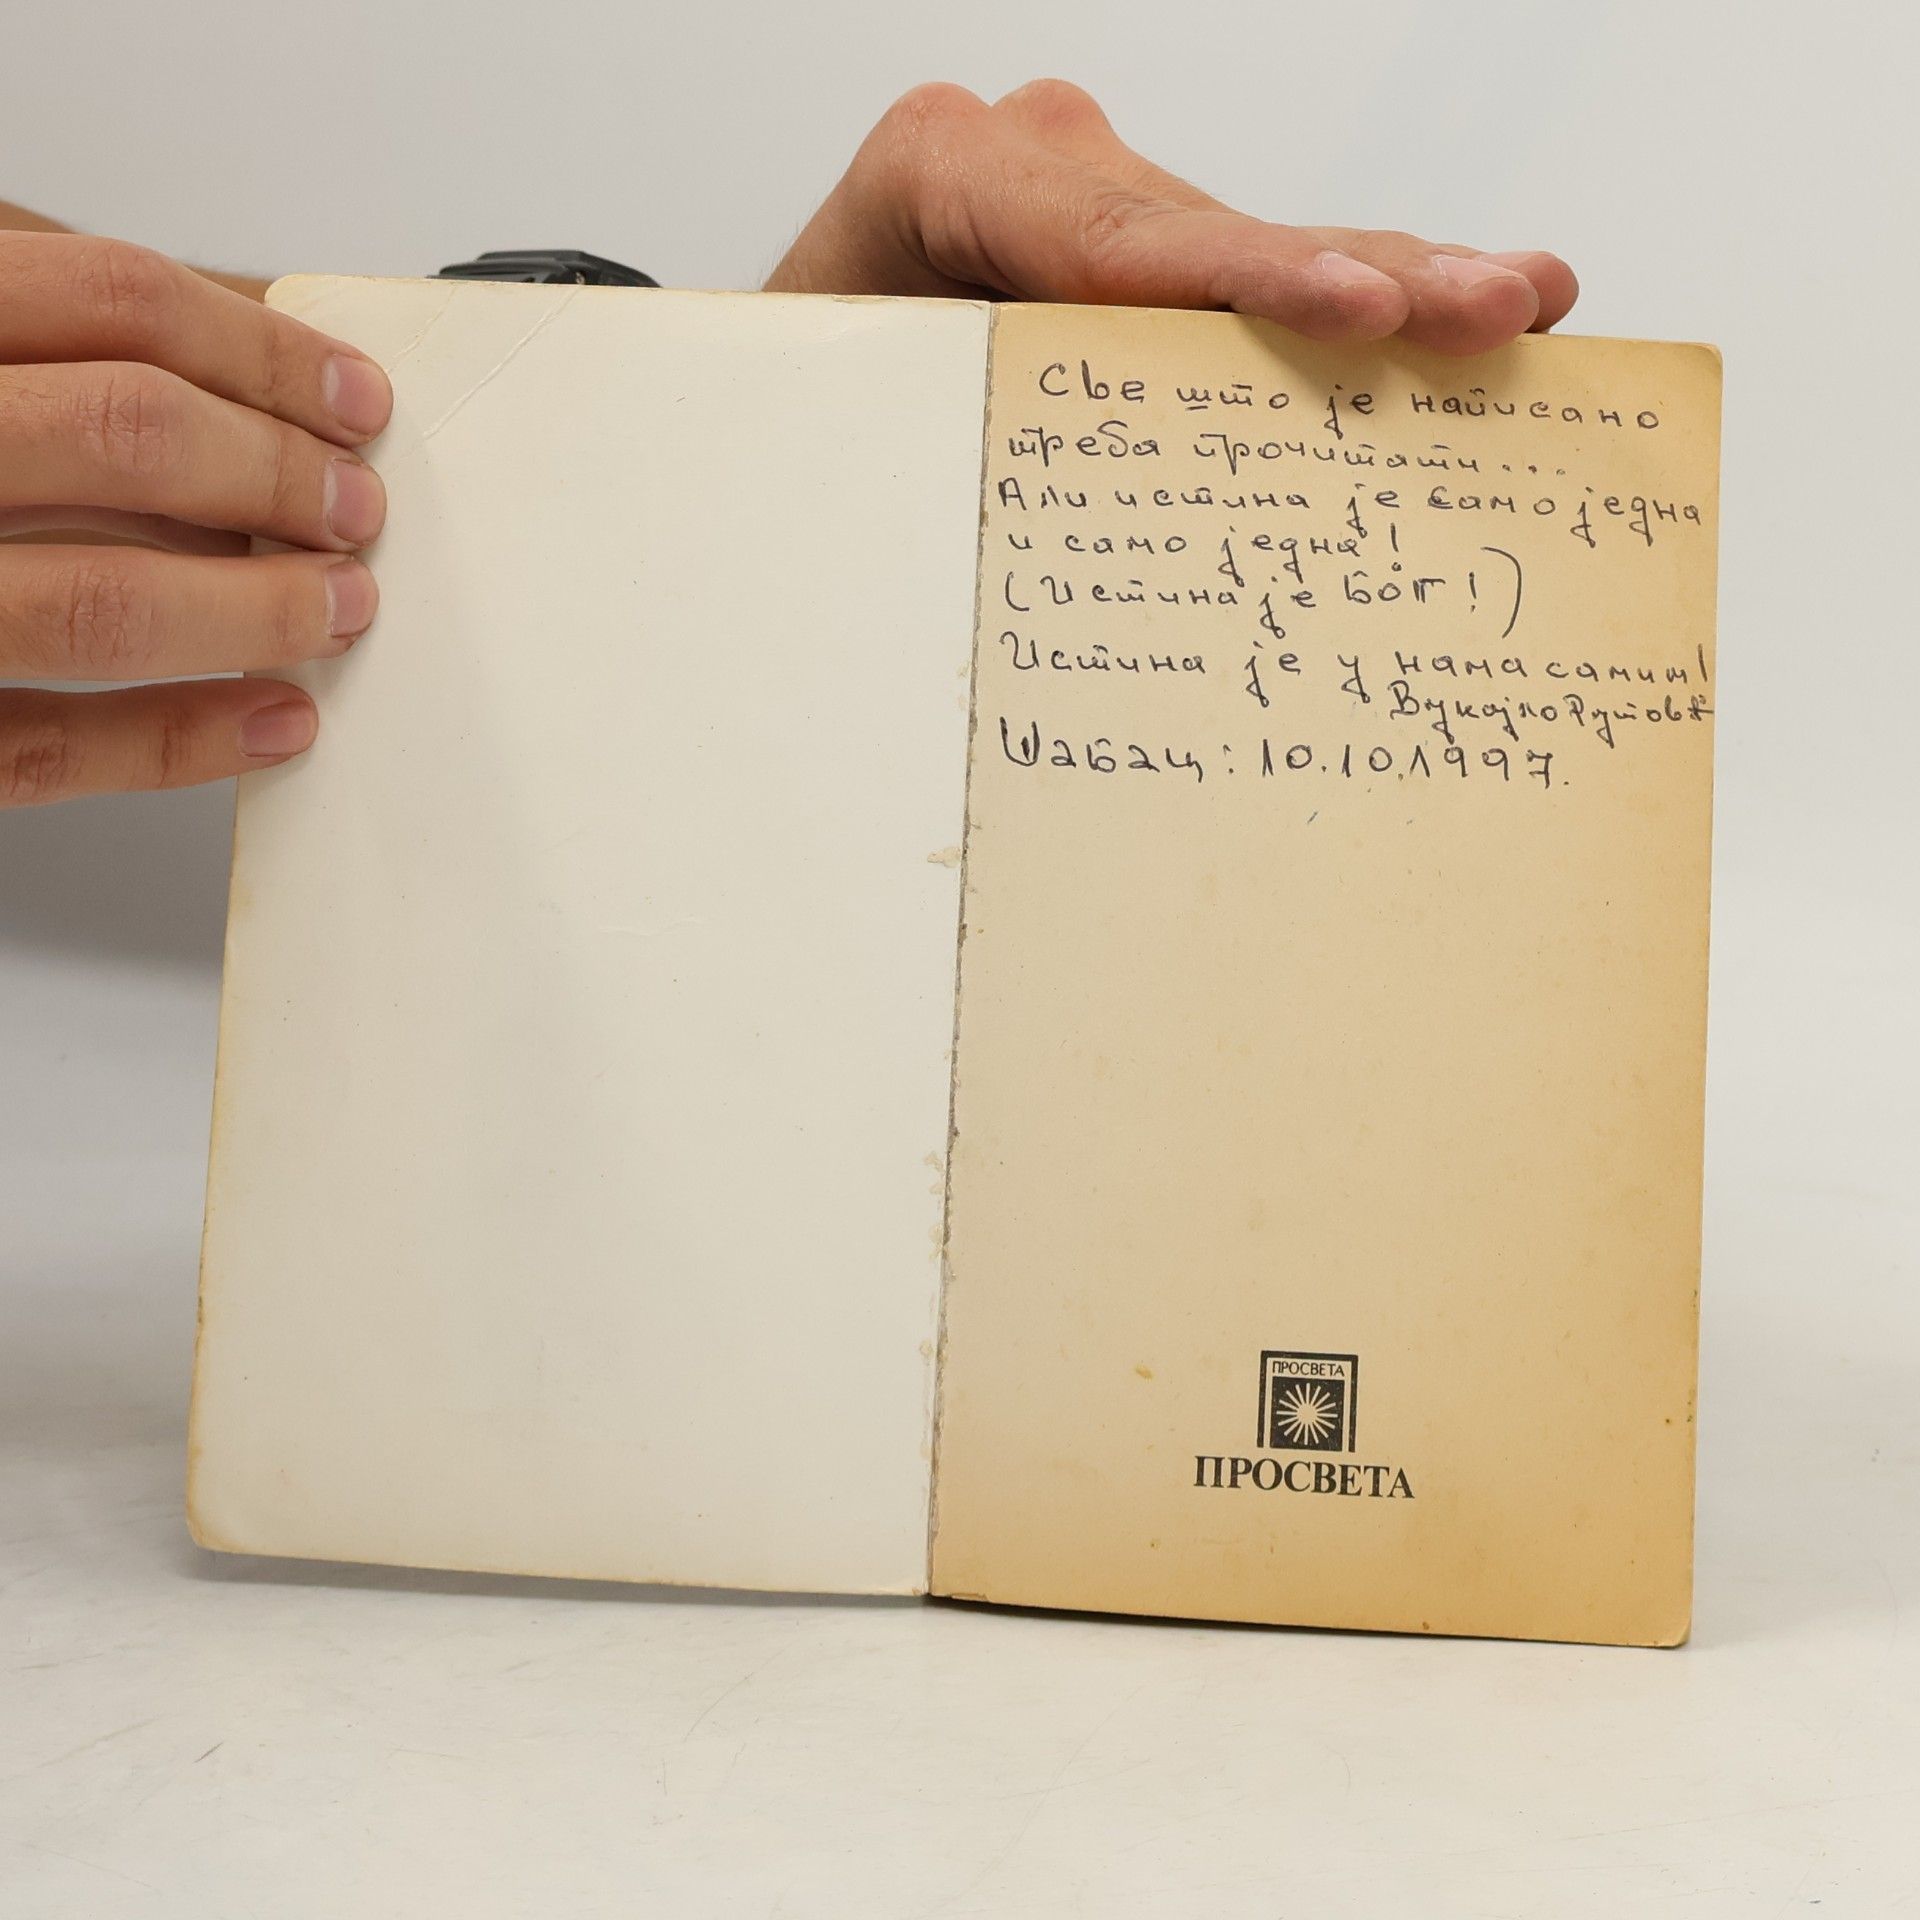 Све што је написано
треба прочитати...
Али истина је само једна
и само једна!
(Истина је БОГ!)
Истина је у нама самим!
Вукајло
Шабац: 10.10.1997.
ПРОСВЕТА
ПРОСВЕТА